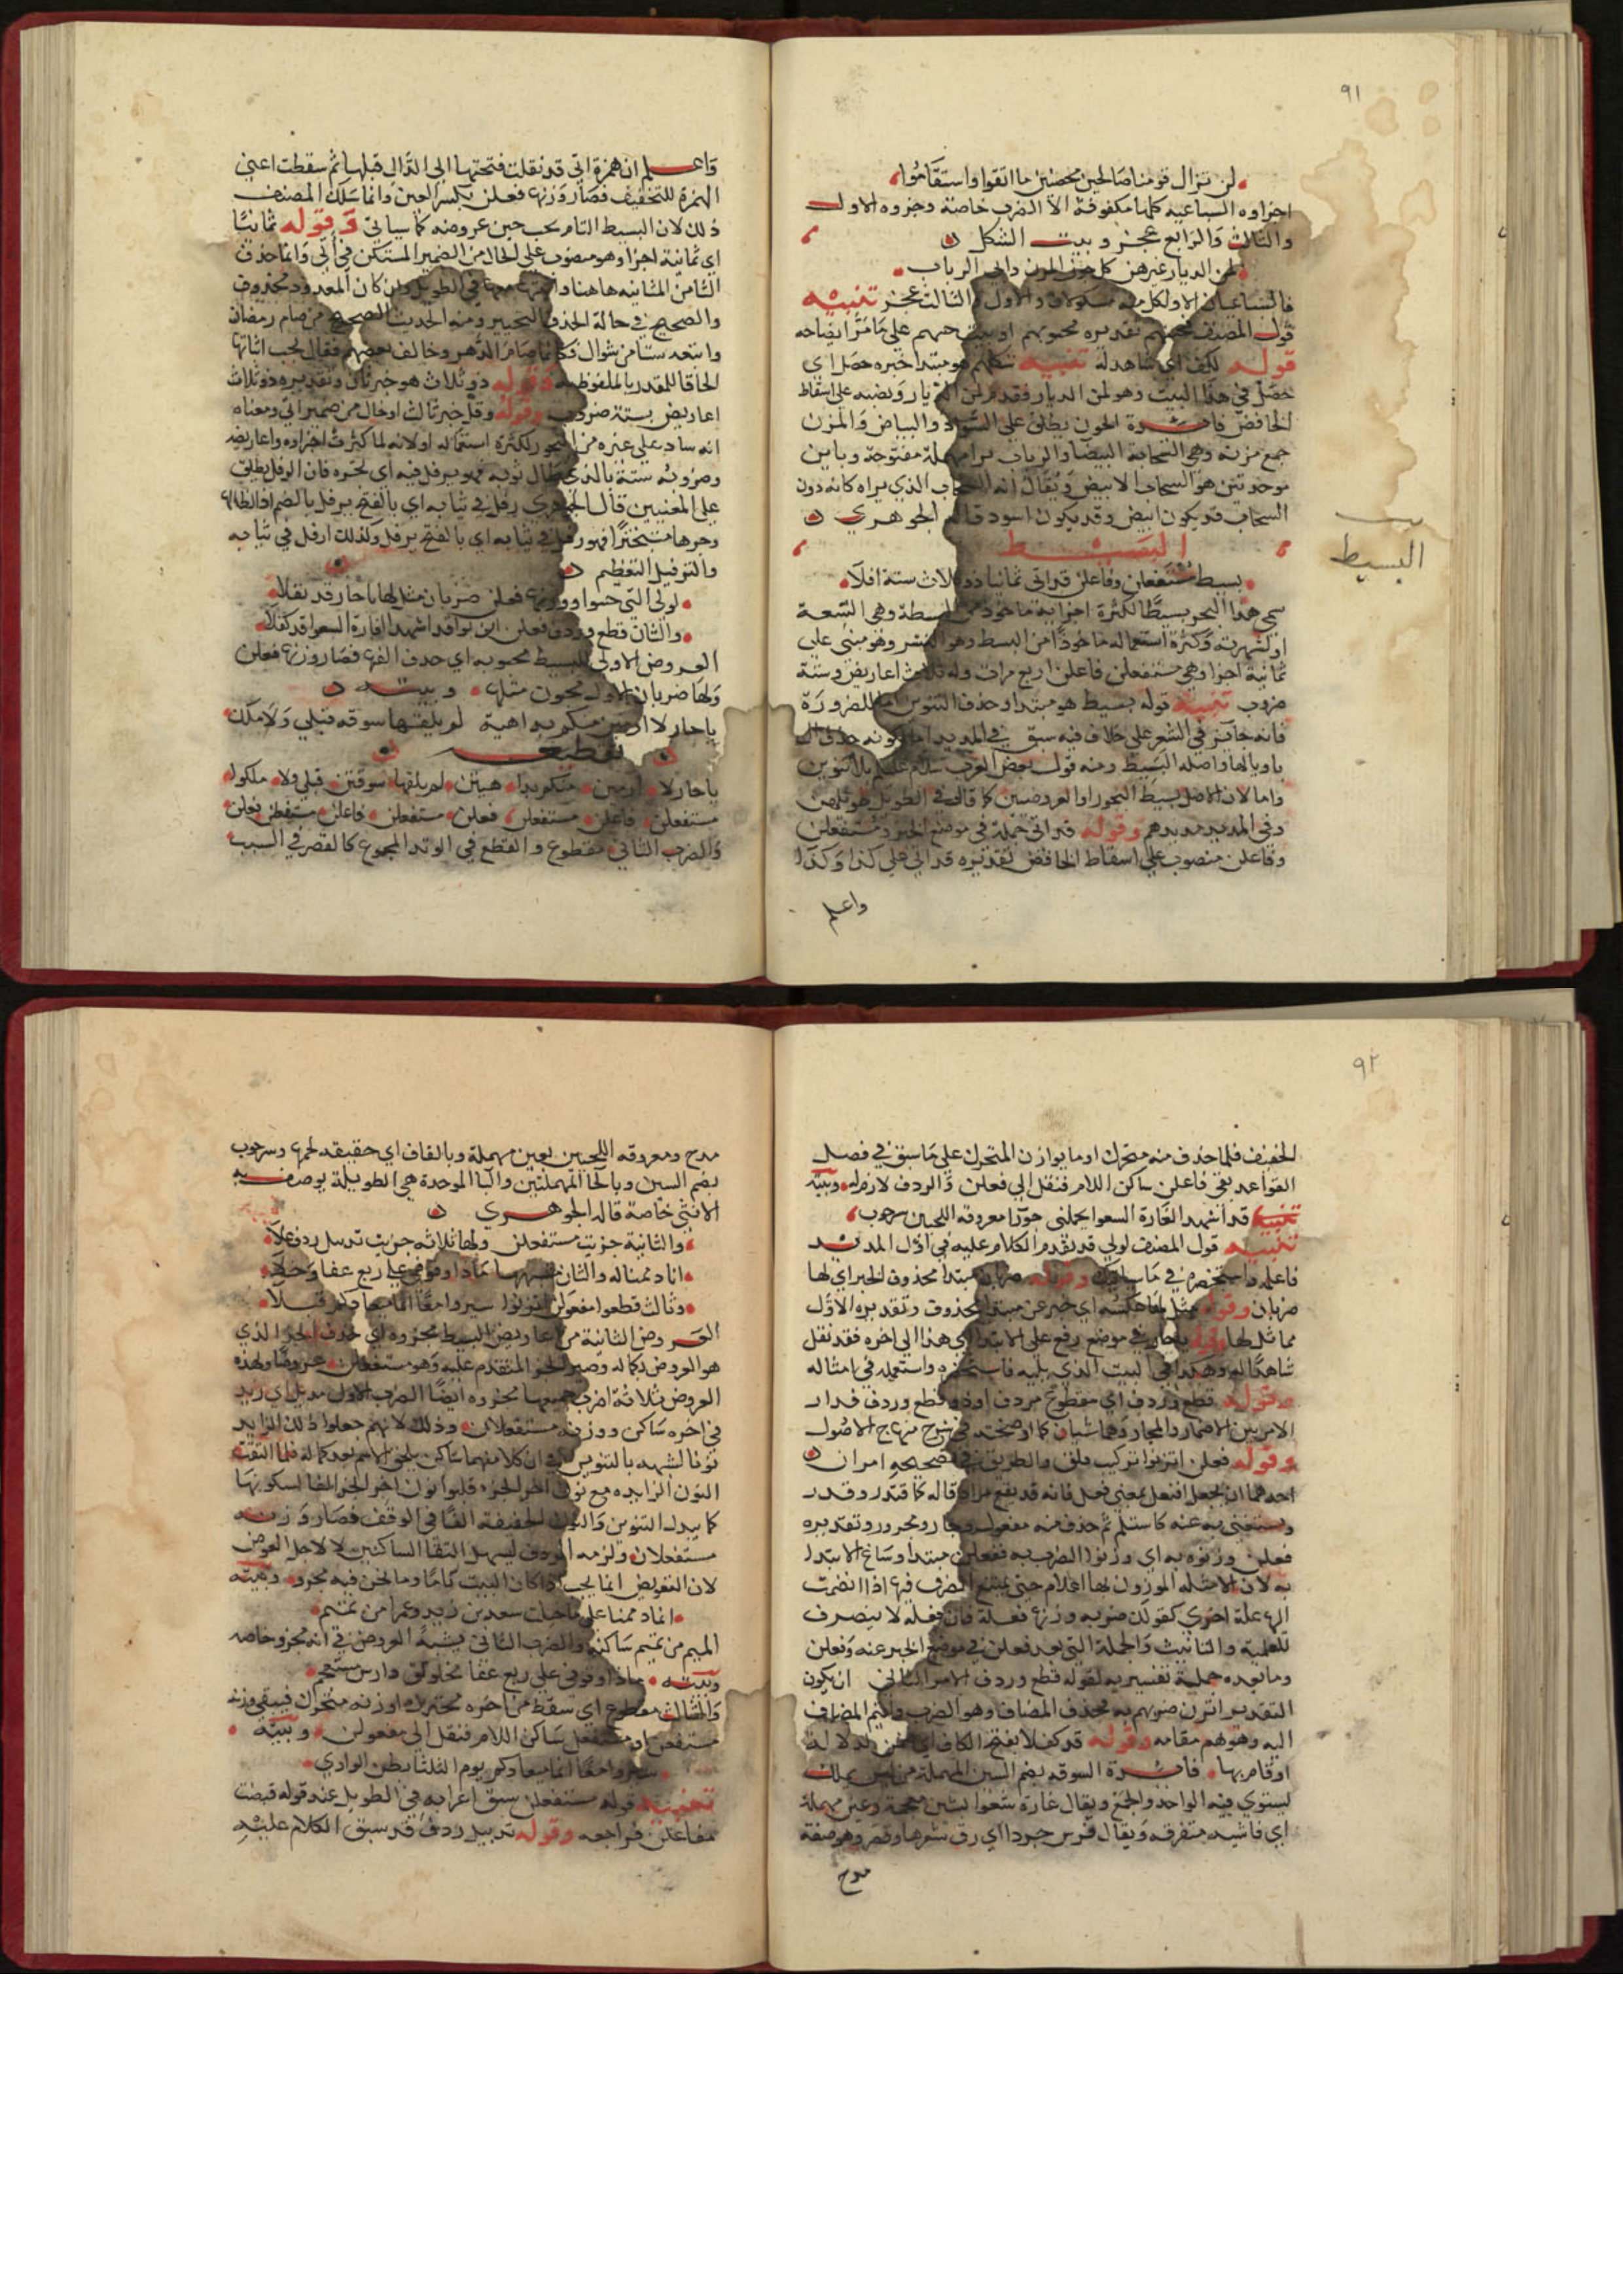 ٩١
لن تزال قومنا صالحين محصنين ما اتقوا واستقاموا
اجزاوه السباعيه كلها مكفوفة الا الضرب خاصة وجزوه الاول
والثالث والرابع عجز وبيت الشكل
لمن الديار غيرهن كل جون المزن داني الرباب
فالسباعيان الاول كل منه مشكولان والاول والثالث عجز تنبيه
قول المصنف تقديره على ما مر ايضاحه
قوله لكف اي شاهد له تنبيه شكلهم هو مبتدا خبره حصل اي
حصل في هذا البيت وهو لمن الديار فقدم لمن الديار ونصبه على اسقاط
الخافض فايدة الجون يطلق على السواد والبياض والمزن
جمع مزنه وهي السحابة البيضا والرباب برا مهملة مفتوحة وباين
موحدتين هو السحاب الابيض ويقال انه السحاب الذي تراه كانه دون
السحاب قد يكون ابيض وقد يكون اسود قاله الجوهري
البسيط
البسيط
بسيط مستفعلن وفاعلن قد اتى ثمانيا ذو ثلاث ستة افلا
سمي هذا البحر بسيطا لكثرة اجزايه ماخوذ من البسطة وهي السعة
او لشهرته وكثرة استعماله ماخوذا من البسط وهو النشر وهو مبني على
ثمانية اجزا وهي مستفعلن فاعلن اربع مرات وله ثلاث اعاريض وستة
ضروب تنبيه قوله بسيط هو مبتدا وحذف التنوين اما للضرورة
فانه جايز في الشعر على خلاف فيه سبق في المديد اما لكونه حذف ال
ناويا لها واصله البسيط ومنه قول بعض العرب سلام عليكم بلا تنوين
واما لان الاصل بسيط البحور او العروضيين كما قال في الطويل طويلهن
وفي المديد مديدهم وقوله قد اتى جملة في موضع الخبر ومستفعلن
وفاعلن منصوب على اسقاط الخافض تقديره قد اتى على كذا وكذا
واعلم
واعلم ان همزة اتى قد نقلت فتحتها الى الدال قبلها ثم سقطت اعني
الهمزة للتخفيف فصار وزنها فعلن بكسر العين وانما سلك المصنف
ذلك لان البسيط التام يجب خبن عروضه كما سياتي وقوله ثمانيا
اي ثمانية اجزا وهو منصوب على الحال من الضمير المستكن في اتى وانما حذف
الثامن المثانيه هاهنا في الطويل وان كان المعدود محذوف
والصحيح في حالة الحذف التخيير ومنه الحديث الصحيح من صام رمضان
واتبعه ستا من شوال فكانما صام الدهر وخالف بعضهم فقال يجب اثباتها
الحاقا للمقدر بالملفوظ به وقوله ذو ثلاث هو خبر ثان وتقديره ذو ثلاث
اعاريض بستة ضروب وقوله وقل خبر ثالث او حال من ضمير اتى ومعناه
انه ساد على غيره من البحور لكثرة استعماله او لانه لما كثرت اجزاوه واعاريضه
وضروبه ستة بالذي طال ثوبه فهو يرفل فيه اي يجره فان الرفل يطلق
على المعنيين قال الجوهري رفل في ثيابه اي بالفتح يرفل بالضم اذا اطالها
وجرها متبخترا فهو رافل في ثيابه اي بالفتح يرفل وكذلك ارفل في ثيابه
والترفيل التعظيم
لولى التي خبنوا ووزنها فعلن ضربان مثل لها يا حار قد نقلا
والثان قطع وردف فعلن اين توا قد اشهد الغارة الشعوا قد كفلا
العروض الاولى للبسيط مخبونه اي حذف الفها فصار وزنها فعلن
ولها ضربان الاول مخبون مثلها وبيته
يا حار لا ارمين منكم بداهية لم يلقها سوقه قبلي ولا ملك
تقطيعه
يا حار لا ارمين منكم بدا هيتن لم يلقها سوقتن قبلي ولا ملكو
مستفعلن فاعلن مستفعلن فعلن مستفعلن فاعلن مستفعلن فعلن
والضرب الثاني مقطوع والقطع في الوتد المجموع كالقصر في السبب
٩٢
الخفيف فلما حذف منه متحرك او ما يوازن المتحرك على ما سبق في فصل
القواعد بقي فاعلن ساكن اللام فنقل الى فعلن والردف لازم له وبيته
قد اشهد الغارة الشعوا تحملني جردا معروقه اللحيين سرحوب
تنبيه قول المصنف لولى قد تقدم الكلام عليه في اول المديد
فاعلمه واستحضره في ما سياتيك وقوله ضربان مبتدا محذوف الخبر اي لها
ضربان وقوله مثل لها خبر عن مبتدا محذوف وتقديره الاول
مماثل لها وقوله يا حار في موضع رفع على الابتدا اي هذا الى اخره فقد نقل
شاهدا له وهكذا في البيت الذي يليه فاستحضره واستعمله في امثاله
وقوله قطع وردف اي مقطوع مردف او ذو قطع وردف فدار
الامر بين الاضمار والمجاز وهما شيان كما اوضحته في شرح منهاج الاصول
وقوله فعلن اتزنوا تركيب قلق والطريق في تصحيحه امران
احدهما ان يجعل افتعل بمعنى فعل فانه قد يقع مرادفا له كما قتدر وقدر
ويستغنى به عنه كاستلم ثم حذف منه مفعول وجار ومجرور وتقديره
فعلن وزنوه به اي وزنوا الضرب به ففعلن مبتدا وساغ الابتدا
به لان الامثله الموزون لها اعلام حتى يمتنع الصرف فيها اذا انضمت
اليها علة اخرى كقولك ضربه وزنها فعلة فان فعله لا ينصرف
للعلمية والتانيث والجملة التي بعد فعلن في موضع الخبر عنه وفعلن
وما بعده جملة تفسيريه لقوله قطع وردف الامر الثاني ان يكون
التقدير اتزن ضربهم به فحذف المضاف وهو الضرب واقيم المضاف
اليه وهو هم مقامه وقوله قد كفلا بفتح الكاف اي ضمن الدلالة
او قام بها فايدة السوقه بضم السين المهملة من ليس بملك
يستوي فيه الواحد والجمع ويقال غارة شعوا بشين معجمة وعين مهملة
اي فاشيه متفرقه ويقال فرس جردا اي رق شعرها وقصر وهو صفة
مدح
مدح ومعروقه اللحيين بعين مهملة وبالقاف اي حقيقه لحمها وسرحوب
بضم السين وبالحا المهملتين والبا الموحدة هي الطويلة يوصف به
الانثى خاصة قاله الجوهري
والثانية جزيت مستفعلن ولها ثلاثه جزيت تذييل ردف علا
انا ذممنا له والثان ماذا وقوفي على ربع عفا وخلا
وثالث قطعوا مفعولن سيروا معا انما ميعادكم قبلا
العروض الثانية من اعاريض البسيط مجزوه اي حذف الجز الذي
هو العروض بكماله وصير الجز المتقدم عليه وهو مستفعلن عروضا ولهذه
العروض ثلاثة اضرب جميعها مجزوه ايضا الضرب الاول مذيل اي زيد
في اخره ساكن ووزنه مستفعلان وذلك لانهم جعلوا ذلك الزايد
نونا لشبهه بالتنوين في ان كلا منهما ساكن يلحق الاسم بعد كماله فلما التقت
النون الزايده مع نون اخر الجز قلبوا نون اخر الجز الفا لسكونها
كما يبدل التنوين والنون الخفيفة الفا في الوقف فصار وزنه
مستفعلان ولزمه الردف ليسهل التقا الساكنين لا لاجل العوض
لان التعويض انما يجب اذا كان البيت تاما وما نحن فيه مجزو وبيته
انا ذممنا على ما خيلت سعد بن زيد وعمرا من تميم
الميم من تميم ساكنه والضرب الثاني يشبه العروض في انه مجزو خاصه
وبيته ماذا وقوفي على ربع عفا مخلولق دارس مستعجم
والثالث مقطوع اي سقط من اخره متحرك او زنه متحرك فبقي وزنه
مستفعل ساكن اللام فنقل الى مفعولن وبيته
سيروا معا انما ميعادكم يوم الثلثا بطن الوادي
تنبيه قوله مستفعلن سبق اعرابه في الطويل عند قوله قبضت
مفاعلن فراجعه وقوله تذييل ردف قد سبق الكلام عليه